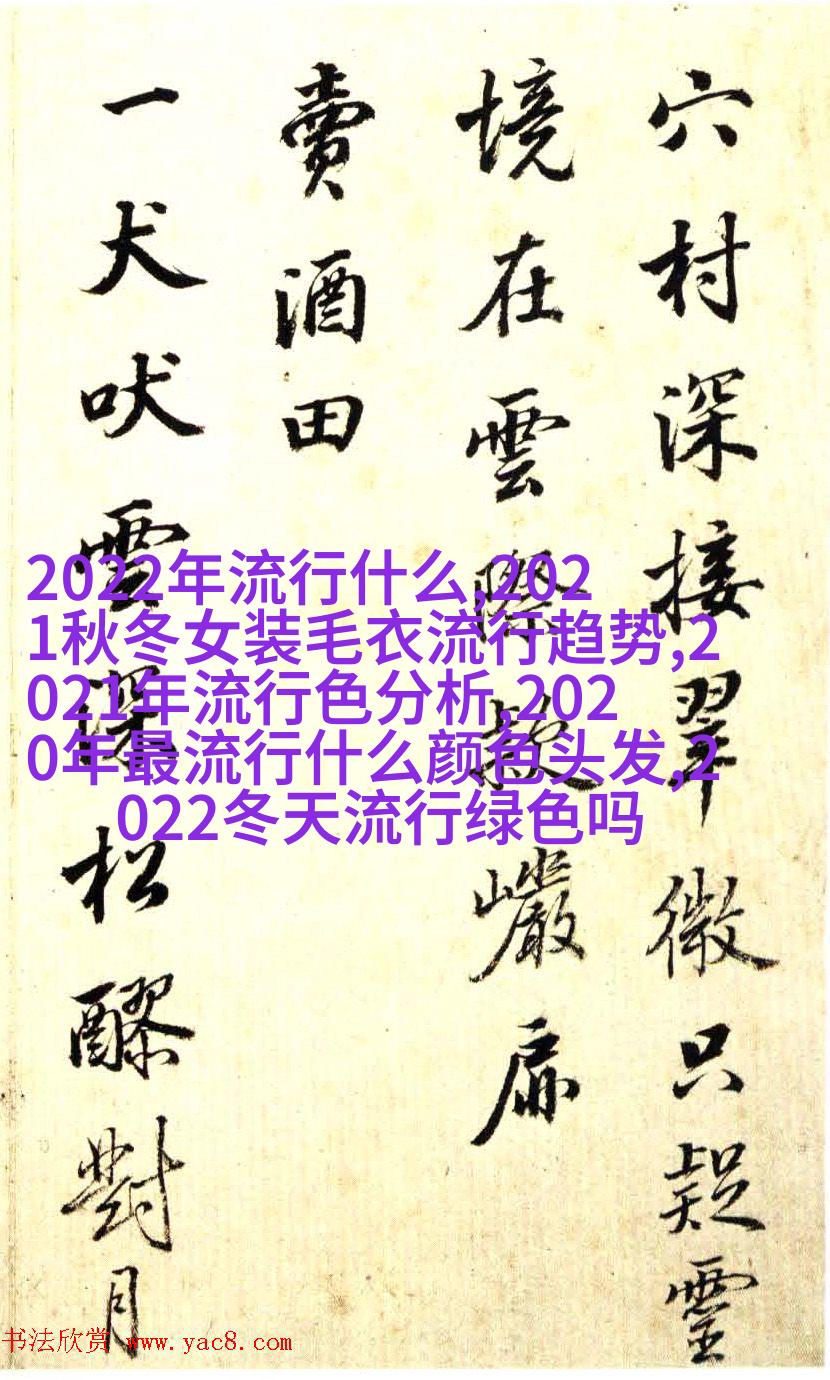 穴村深接翠微只疑靈
境在雲際款巖扉
賣酒田
一犬吠雲深松醪對月
2022年流行什么,202
1秋冬女装毛衣流行趋势,2
021年流行色分析,202
0年最流行什么颜色头发,2
022冬天流行绿色吗
书法欣赏 www.yac8.com